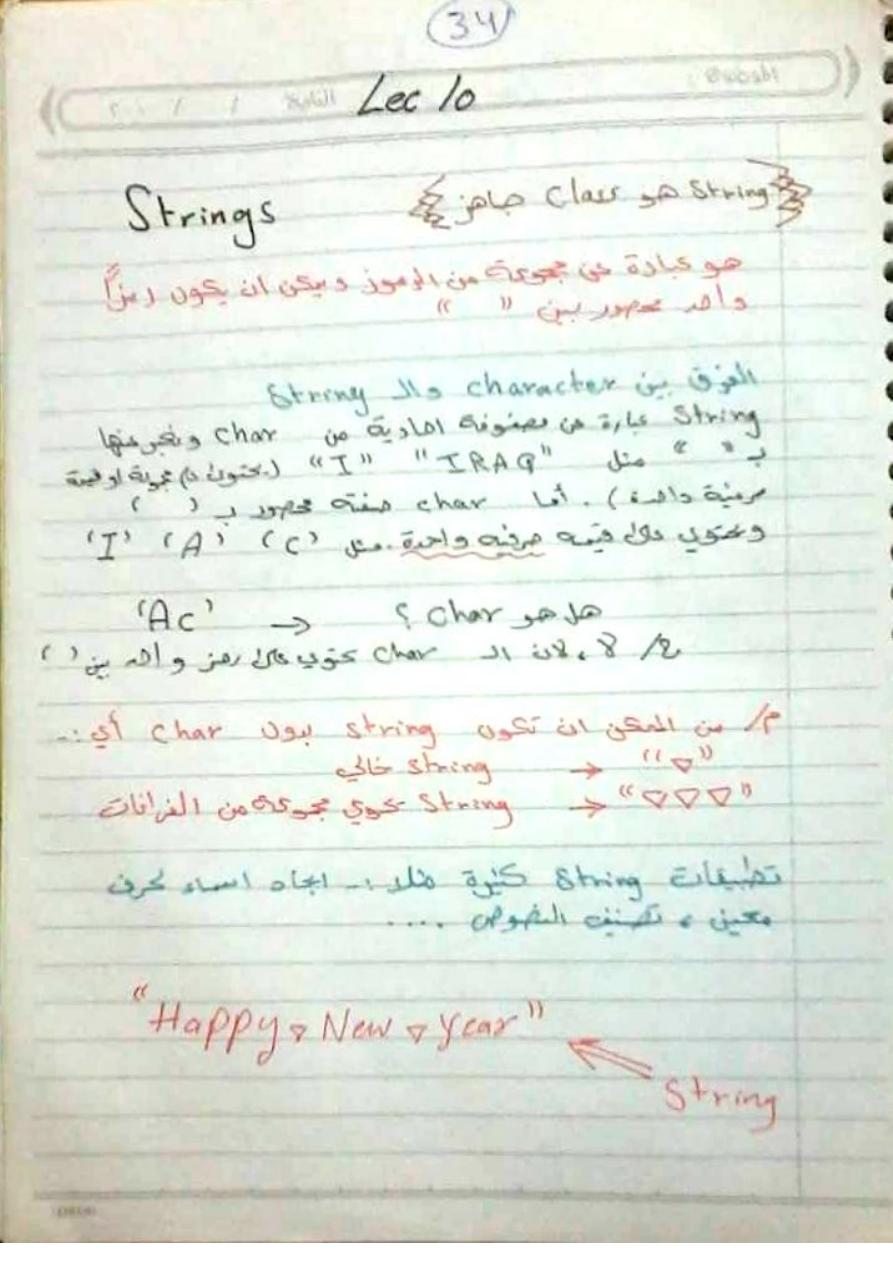 34
Lec 10
Strings
String هو Class جاهز
هو عبارة عن مجموعة من الرموز ويمكن ان يكون رمزاً
واحد محصور بين " "
الفرق بين character والـ String
String عبارة عن مصفوفة احادية من char ونعبر عنها
بـ " " مثل "IRAQ" "I" (يحتوي على مجموعة او قيمة
حرفية واحدة). أما char محصور بـ ' '
ويحتوي على قيمه حرفيه واحدة. مثل 'C' 'A' 'I'
هل هو char ؟ → 'Ac'
ج/ لا، لان الـ char يحتوي على رمز واحد بين ' '
م/ من الممكن ان تكون String بدون char أي :-
"▽" → String خالي
"▽▽▽" → String يحوي مجموعة من الفراغات
تطبيقات String كثيرة مثلا :- ايجاد اسماء لحرف
معين ، تصنيف النصوص ....
"Happy▽New▽Year"
String